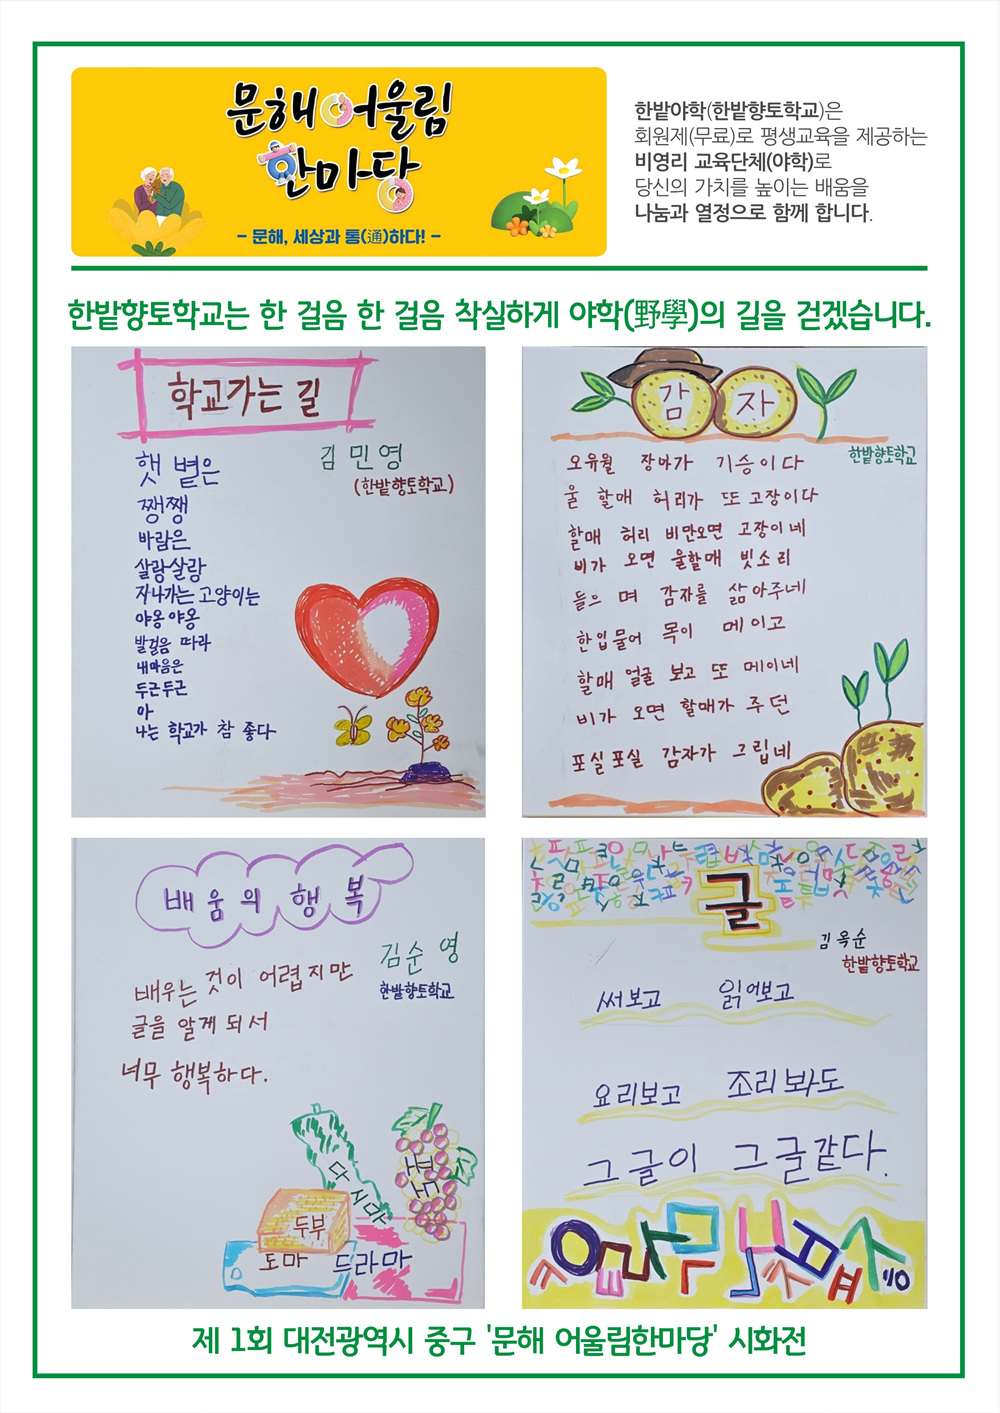 문해 어울림
한마당
- 문해, 세상과 통(通)하다! -
한밭야학(한밭향토학교)은
회원제(무료)로 평생교육을 제공하는
비영리 교육단체(야학)로
당신의 가치를 높이는 배움을
나눔과 열정으로 함께 합니다.
한밭향토학교는 한 걸음 한 걸음 착실하게 야학(野學)의 길을 걷겠습니다.
학교가는 길
김 민 영
(한밭향토학교)
햇 볕은
쨍쨍
바람은
살랑살랑
지나가는 고양이는
야옹 야옹
발걸음 따라
내마음은
두근두근
아
나는 학교가 참 좋다
감 자
한밭향토학교
오유월 장마가 기승이다
울 할매 허리가 또 고장이다
할매 허리 비만오면 고장이네
비가 오면 울할매 빗소리
들으 며 감자를 삶아주네
한입 물어 목이 메이고
할매 얼굴 보고 또 메이네
비가 오면 할매가 주던
포실포실 감자가 그립네
배움의 행복
김순영
한밭향토학교
배우는 것이 어렵지만
글을 알게 되서
너무 행복하다.
다시마
두부
토마
드라마
글
김옥순
한밭향토학교
써보고 읽어보고
요리보고 조리봐도
그글이 그글같다.
제 1회 대전광역시 중구 '문해 어울림한마당' 시화전